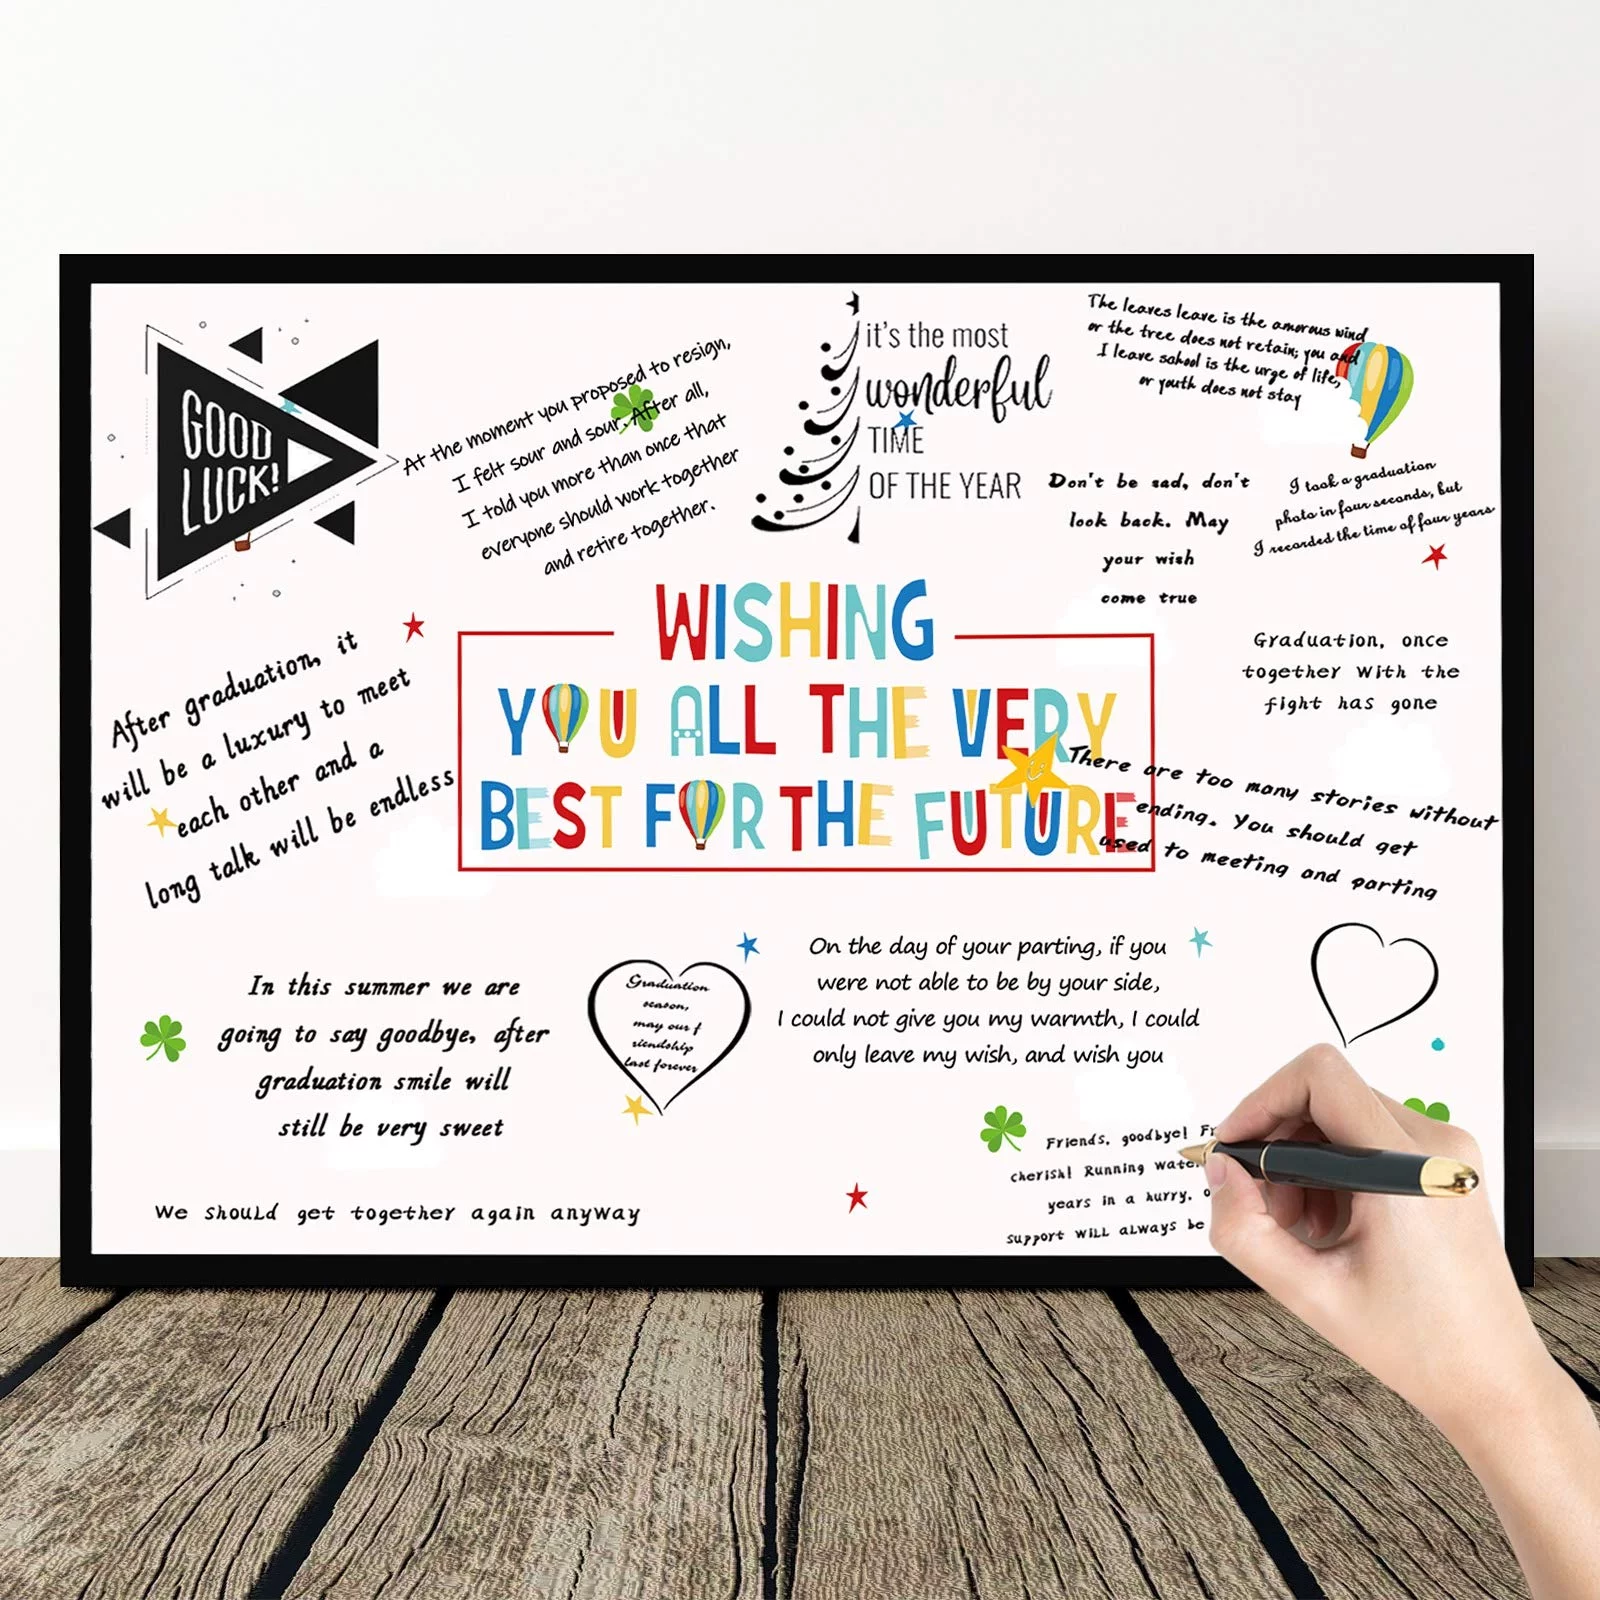 GOOD
LUCK!
At the moment you proposed to resign,
I felt sour and sour. After all,
I told you more than once that
everyone should work together
and retire together.
it's the most
wonderful
TIME
OF THE YEAR
The leaves leave is the amorous wind
or the tree does not retain; you and
I leave school is the urge of life,
or youth does not stay
Don't be sad, don't
look back. May
your wish
come true
I took a graduation
photo in four seconds, but
I recorded the time of four years
WISHING
YOU ALL THE VERY
BEST FOR THE FUTURE
After graduation, it
will be a luxury to meet
each other and a
long talk will be endless
Graduation, once
together With the
fight has gone
There are too many stories without
ending. You should get
used to meeting and parting
In this summer we are
going to say goodbye, after
graduation smile will
still be very sweet
Graduation
season,
may our f
riendship
last forever
On the day of your parting, if you
were not able to be by your side,
I could not give you my warmth, I could
only leave my wish, and wish you
We should get together again anyway
Friends, goodbye!
cherish! Running
years in a hurry,
support will always be